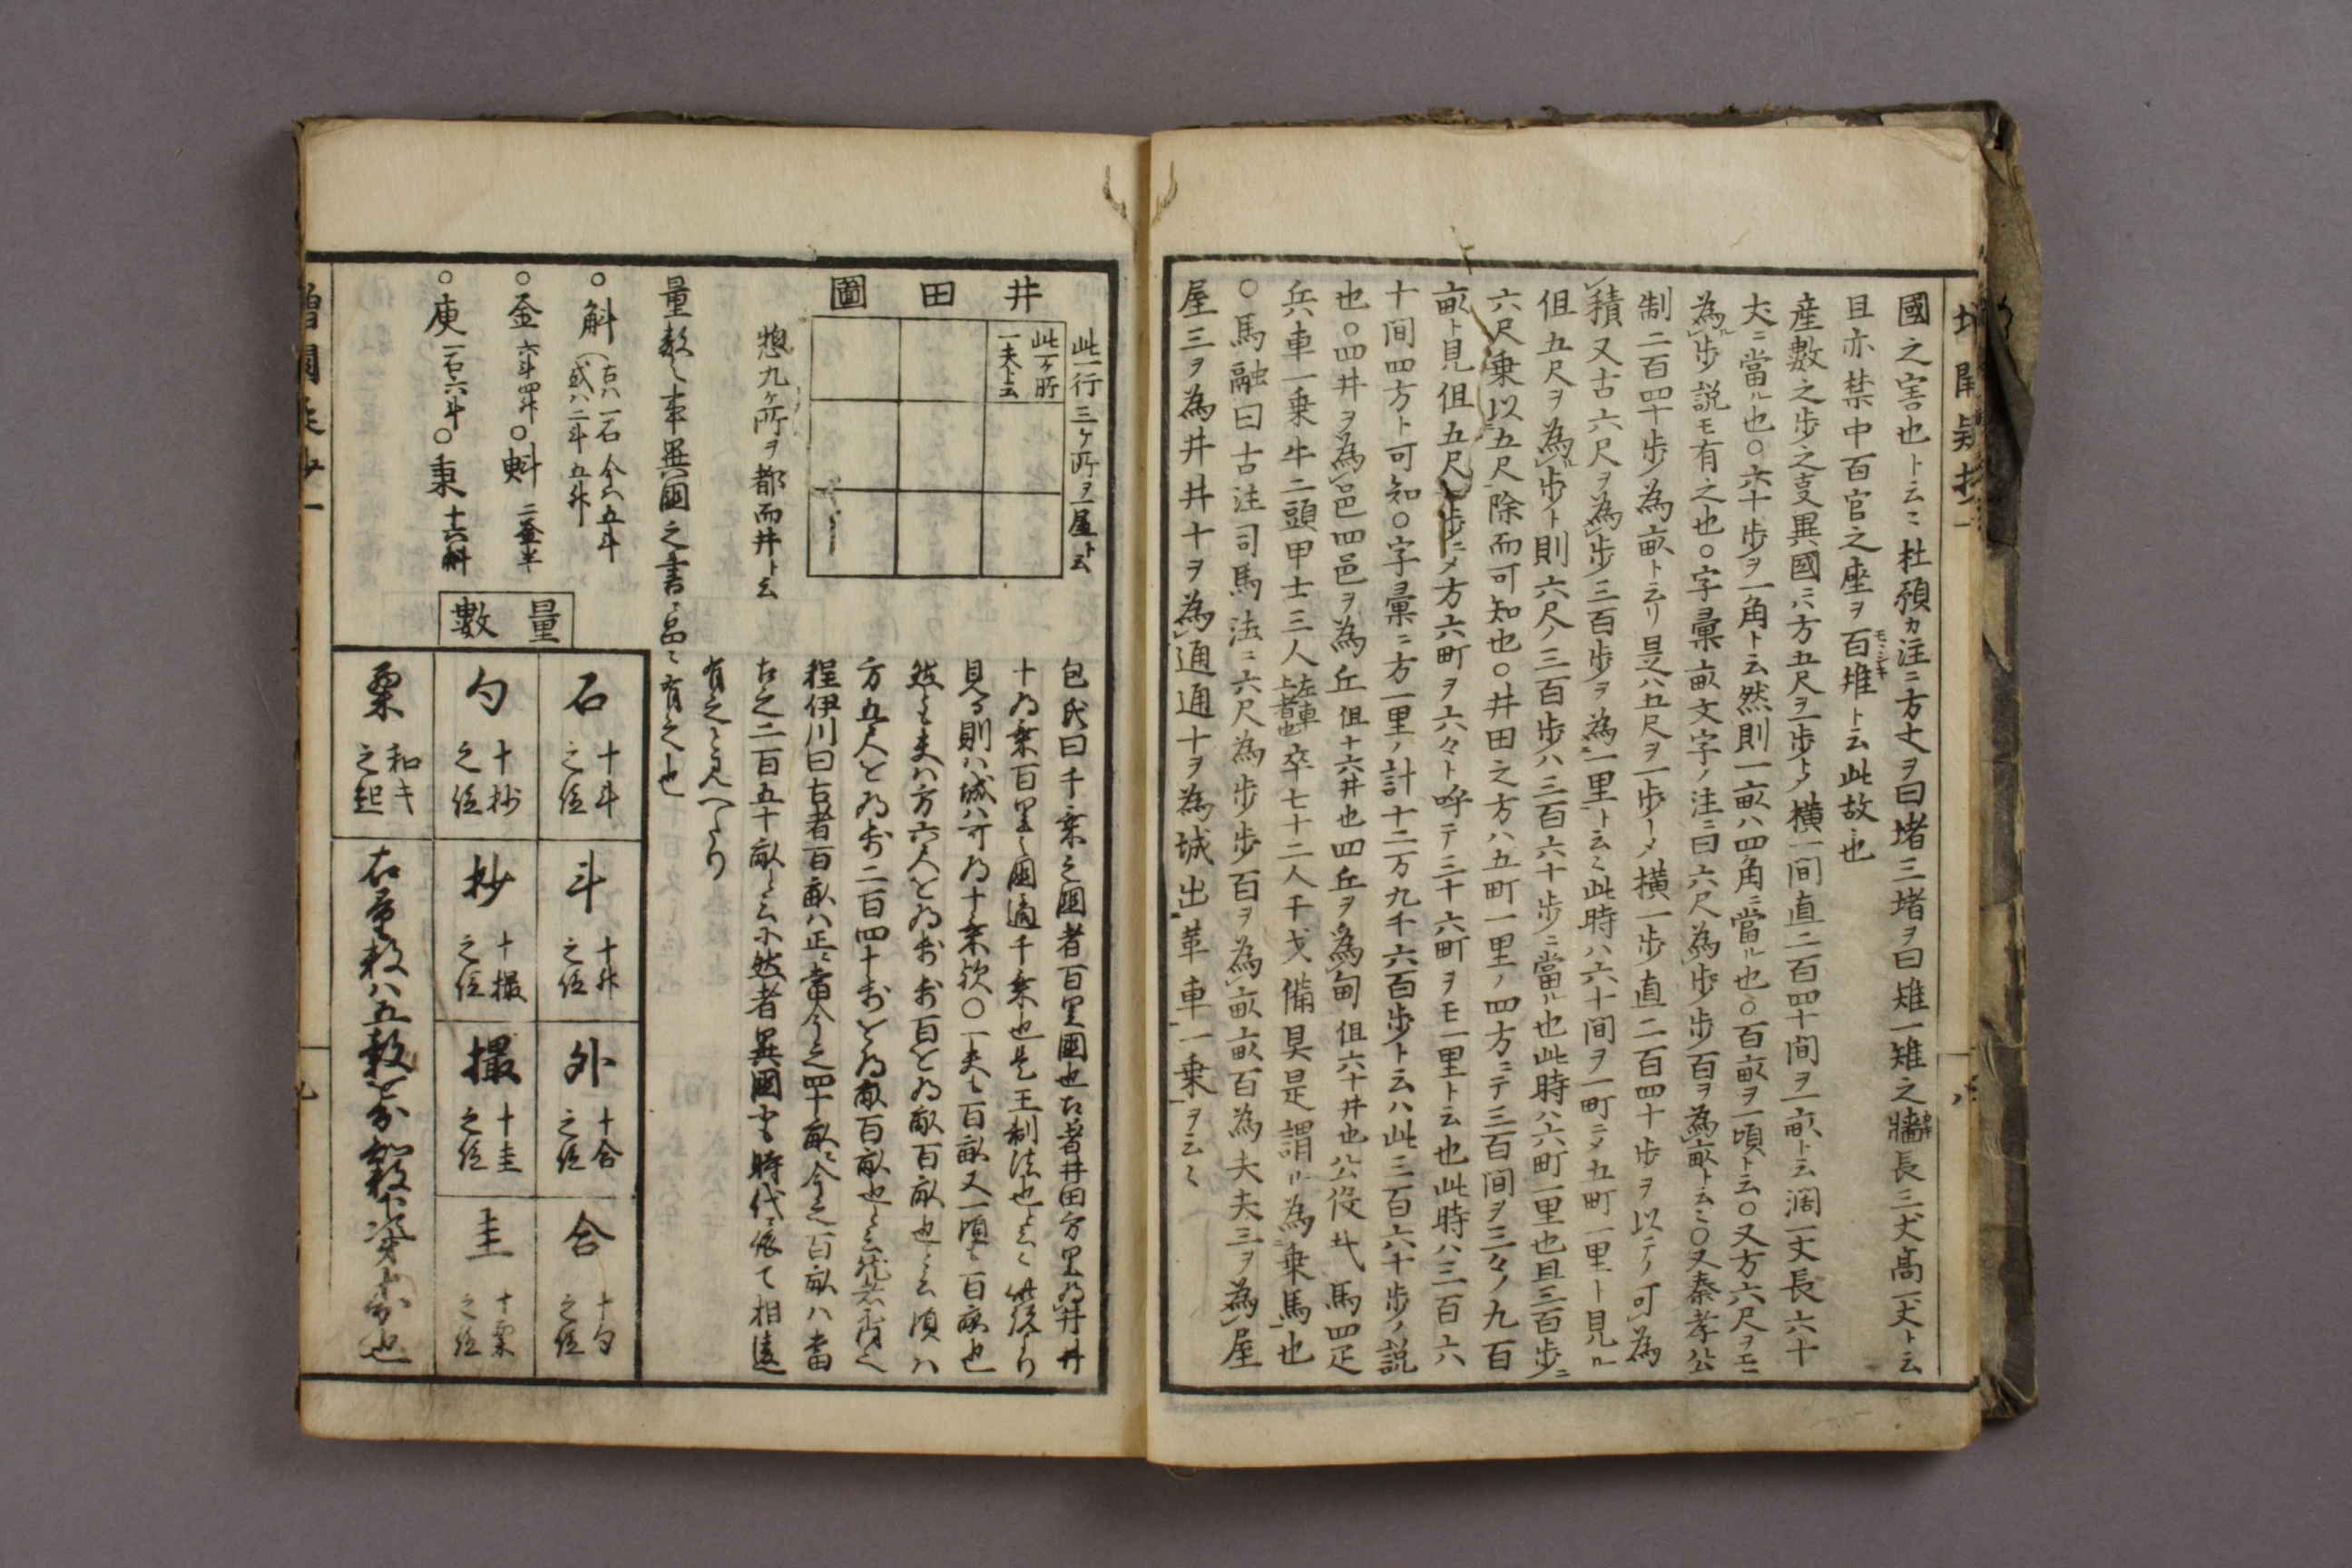 國之害也ト云ニ杜預カ注ニ方丈ヲ曰堵三堵ヲ曰雉一雉之牆長三丈高一丈ト云
且亦禁中百官之座ヲ百雉モヽシキト云此故也
産數之歩之支異國ニハ方五尺ヲ一歩トノ横一間直二百四十間ヲ一畝ト云濶一丈長六十
丈ニ當ル也〇六十歩ヲ一角ト云然則一畝ハ四角ニ當ル也〇百畝ヲ一頃ト云〇又方六尺ヲモ
為歩説モ有之也〇字彙畝文字ノ注ニ曰六尺為歩歩百ヲ為畝ト云ニ〇又秦孝公
制二百四十歩為畝ト云リ是ハ五尺ヲ一歩ーメ横一歩直二百四十歩ヲ以テノ可為
積又古六尺ヲ為歩三百歩ヲ為一里ト云ミ此時ハ六十間ヲ一町ニメ五町一里ト見ル
但五尺ヲ為歩ト則六尺ノ三百歩ハ三百六十歩ニ當ル也此時ハ六町一里也且三百歩ニ
六尺乗以五尺除而可知也〇井田之方ハ五町一里ノ四方ニテ三百間ヲ三々ノ九百
畝ト見但五尺歩ニメ方六町ヲ六々ト呼テ三十六町ヲモ一里ト云也此時ハ三百六
十間四方ト可知〇字彙ニ方一里ノ計十二万九千六百歩ト云ハ此三百六十歩ノ説
也〇四井ヲ為邑四邑ヲ為丘但十六井也四丘ヲ為甸但六十井也公役弌馬四疋
兵車一乗牛二頭甲士三人左車上者也卒七十二人干戈備具是謂ル為乗馬也
〇馬融曰古注司馬法ニ六尺為歩歩百ヲ為畝畝百為夫夫三ヲ為屋
屋三ヲ為井井十ヲ為通通十ヲ為城出革車一乗ヲ云ミ
井田圖
此一行三ケ所ヲ一屋ト云
此一ケ所
一夫ト云
惣九ケ所ヲ都而井ト云
包氏曰千乗之國者百里國也古者井田方里為井井
十為乗百里之國適千乗也是王制法也と云く
見る則ハ城ハ可為十乗欤〇一夫ハ百畝又一頃も百畝也
然も夫ハ方六尺と為歩歩百と為畝百畝也と云頃ハ
方五尺と為歩二百四十歩と為畝百畝也と云
程伊川曰古者百畝ハ正ニ當今之四十畝今之百畝ハ當
古之二百五十畝と云然者異國も時代依て相違
有之と見へたり
量數之本異國之書ニ品々有之也
〇斛古ハ一石今ハ五斗
或ハ二斗五升
〇釜六斗四升〇㪷二釜半
〇庾一石六斗〇秉十六斛
量數
石十斗之位
斗十升之位
升十合之位
合十勺之位
勺十抄之位
抄十撮之位
撮十圭之位
圭十粟之位
粟和キ之起